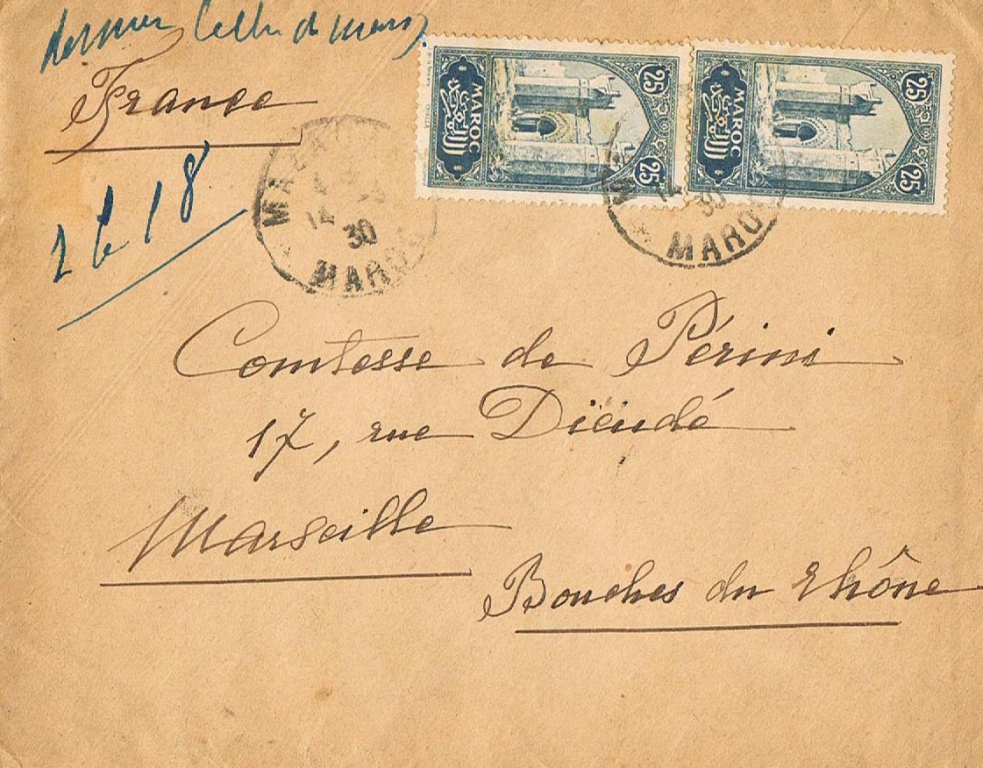 France
2 18
25 MAROC 25
25 MAROC 25
MAROC
30
MAROC
30
Comtesse de Périni
17, rue Dieudé
Marseille
Bouches du Rhône